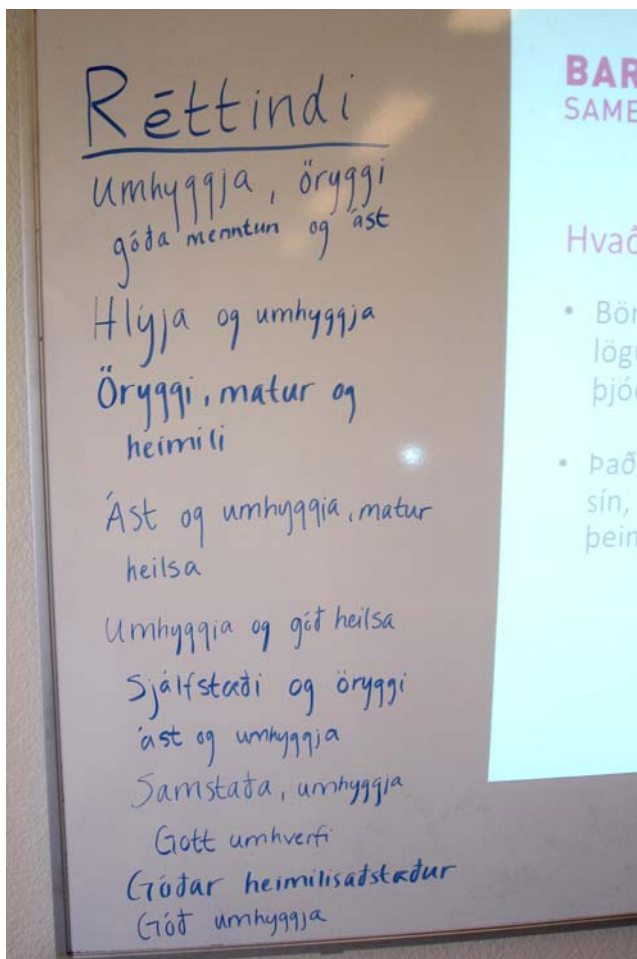 Réttindi
Umhyggja, öryggi
góða menntun og ást
Hlýja og umhyggja
Öryggi, matur og
heimili
Ást og umhyggja, matur
heilsa
Umhyggja og góð heilsa
Sjálfstæði og öryggi
ást og umhyggja
Samstaða, umhyggja
Gott umhverfi
Góðar heimilisaðstæður
Góð umhyggja
BAR
SAME
Hvað
• Bör
lögu
þjóð
• Það
sín,
þeim